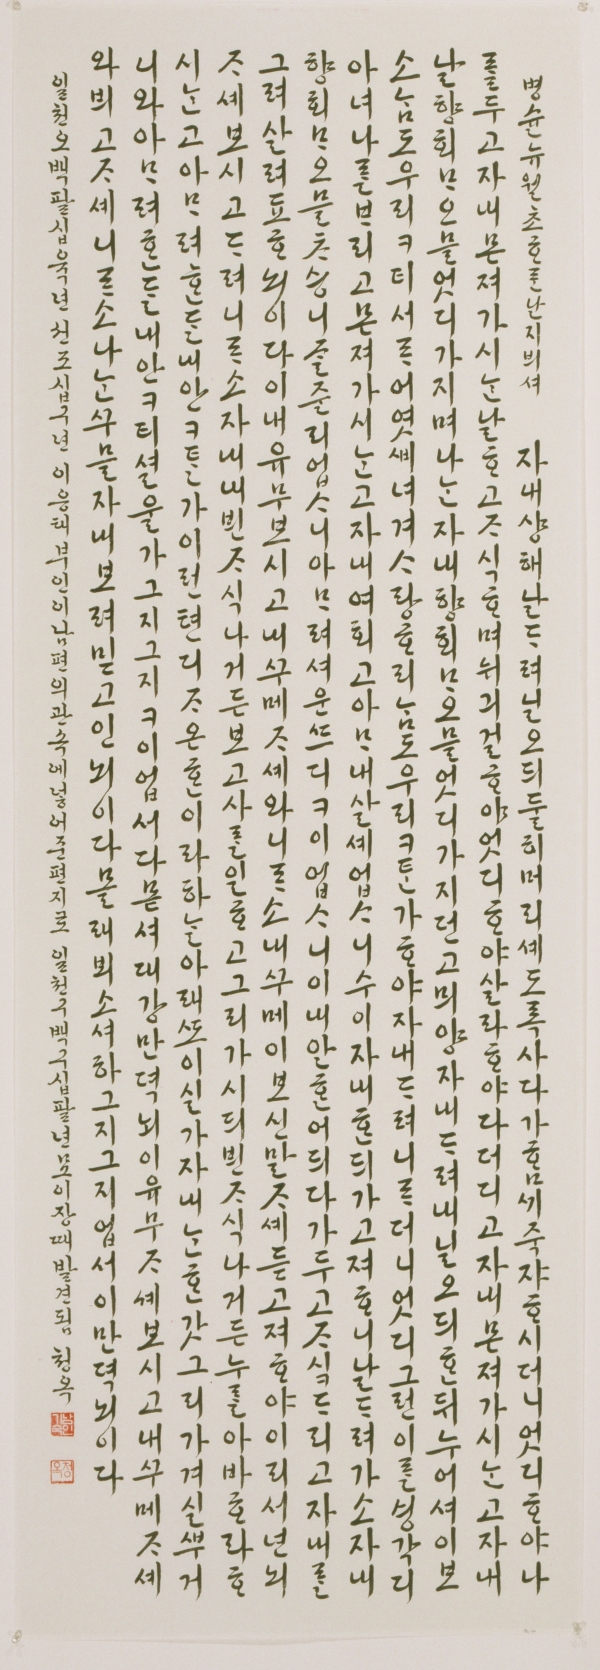 병슐뉴월초ᄒᆞᄅᆞᆫ난지븨셔 자내샹해날ᄃᆞ려닐오ᄃᆡ둘히머리셰도록사다가ᄒᆞᆷᄭᅴ죽쟈ᄒᆞ시더니엇디ᄒᆞ야나
ᄅᆞᆯ두고자내몬져가시ᄂᆞᆫ날ᄒᆞ고ᄌᆞ식ᄒᆞ며뉘긔걸ᄒᆞ야엇디ᄒᆞ야살라ᄒᆞ야다더디고자내몬져가시ᄂᆞᆫ고자내
날향ᄒᆡᄆᆞᄋᆞᄆᆞᆯ엇디가지며나ᄂᆞᆫ자내향ᄒᆡᄆᆞᄋᆞᄆᆞᆯ엇디가지던고ᄆᆡ양자내ᄃᆞ려내닐오ᄃᆡᄒᆞᆫᄃᆡ누어셔이보
소ᄂᆞᆷ도우리ᄀᆞ티서ᄅᆞ어엿ᄲᅵ녀겨ᄉᆞ랑ᄒᆞ리ᄂᆞᆷ도우리ᄀᆞᄐᆞᆫ가ᄒᆞ야자내ᄃᆞ려니ᄅᆞ더니엇디그런이ᄅᆞᆯᄉᆡᆼ각디
아녀나ᄅᆞᆯᄇᆞ리고몬져가시ᄂᆞᆫ고자내여ᄒᆡ고아ᄆᆞ내살셰업ᄉᆞ니수이자내ᄒᆞᆫᄃᆡ가고져ᄒᆞ니날ᄃᆞ려가소자내
향ᄒᆡᄆᆞᄋᆞᄆᆞᆯᄎᆞᄉᆡᆼ니ᄌᆞᆯ줄리업ᄉᆞ니아ᄆᆞ려셔운ᄠᅳ디ᄀᆞ이업ᄉᆞ니이내안ᄒᆞᆫ어ᄃᆡ다가두고ᄌᆞ식ᄃᆞ리고자내ᄅᆞᆯ
그려살려뇨ᄒᆞ뇌이다이내유무보시고내ᄭᅮ메ᄌᆞ셰와니ᄅᆞ소내ᄭᅮ메이보신말ᄌᆞ셰듣고져ᄒᆞ야이리서년뇌
ᄌᆞ셰보시고ᄃᆞ려니ᄅᆞ소자내내ᄇᆡᆫᄌᆞ식나거든보고사ᄅᆞᆯ일ᄒᆞ고그리가시ᄃᆡᄇᆡᆫᄌᆞ식나거든누ᄅᆞᆯ아바ᄒᆞ라ᄒᆞ
시ᄂᆞᆫ고아ᄆᆞ려ᄒᆞᆫᄃᆞᆯ내안ᄀᆞᄐᆞᆯ가이런텬디ᄌᆞ온ᄒᆞᆫ이라하ᄂᆞᆯ아래ᄯᅩ이실가자내ᄂᆞᆫᄒᆞᆫ갓그리가겨실ᄲᅮ거
니와아ᄆᆞ려ᄒᆞᆫᄃᆞᆯ내안ᄀᆞ티셜울가그지그지ᄀᆞ이업서다몯셔대강만뎍뇌이유무ᄌᆞ셰보시고내ᄭᅮ메ᄌᆞ셰
와뵈고ᄌᆞ셰니ᄅᆞ소나ᄂᆞᆫᄭᅮ믈자내보려믿고인뇌이다몰래뵈소셔하그지그지업서이만뎍뇌이다
일천오백팔십육년 선조십구년 이응태부인이남편의관속에넣어준편지로 일천구백구십팔년묘이장때발견됨 청옥